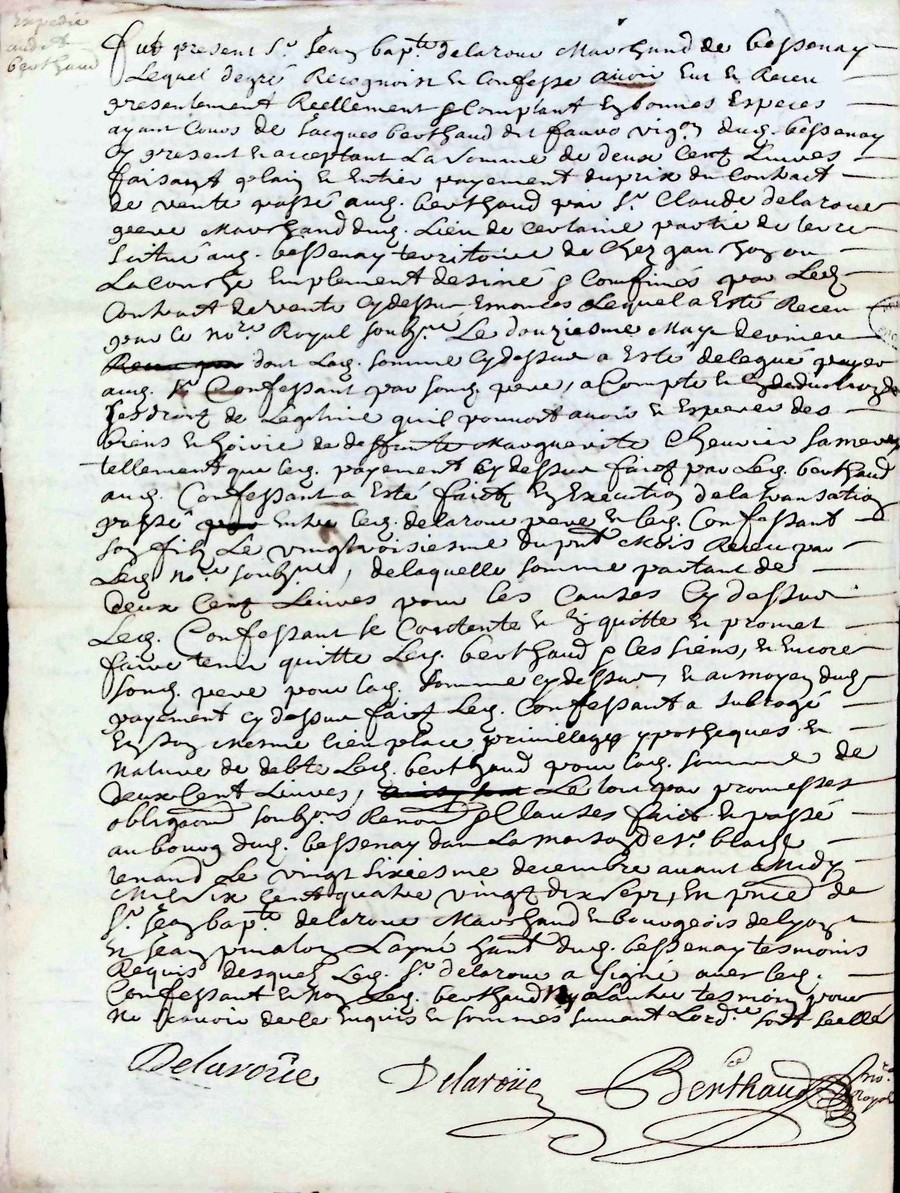 Expedié
audit
berthaud
Fut present Sr Jean bapte delaroue Marchand de bessenay
Lequel degré Recognoist et Confesse avoir Eut et Receu
presentement Réellement & Comptant En bonnes Especes
ayant Cours de Jacques berthaud dit fauvo vigon dud. bessenay
cy present et acceptant La somme de deux Cent Livres
faisant plain et Entier payement du prix du Contract
de vente passé aud. berthaud par Sr Claude delaroue
pere Marchand dud. Lieu de Certaine partie de terre
Situé aud. bessenay territoire de Chez
La Conche Emplement desiné & Confinés par Led.
Contract de vente Cy dessus Enoncés Lequel a Esté Receu
par le nore Royal soubsné Le douziesme May dernier
dont Lad. somme Cy dessus a Esté deleguée payer
aud. Sr Confessant par sond. pere, a Compte et En deduction de
ses droits de Legitime quil pouvoit avoir et Esperer des
biens et hoirie de deffunte Marguerite Chevrier sa mere
tellement que led. payement Cy dessus faict par Led. berthaud
aud. Confessant a Esté faict En Execution de la transaction
passé Entre led. delaroue pere et led. Confessant
son filz Le vingt troisiesme du pnt Mois Receu par
Led. nore soubsné, de laquelle somme partant de
deux Cent Livres pour les Causes Cy dessus
Led. Confessant se Contente et En quitte et promet
faire tenir quitte Led. berthaud & les siens, et Encore
sond. pere pour lad. somme Cy dessus, et au moyen dud.
payement cy dessus faict Led. Confessant a subrogé
En son mesme lieu place privilleges ypotheques et
nature de debte Led. berthaud pour lad. somme de
deux Cent Livres, Le tout par promesses
obligaons soubzons Renons & Clauses faict et passé
au bourg dud. bessenay dans La maison de Sr blaise
renand Le vingt sixiesme decembre avant Midy
Mil six Cent quatre vingt dix sept, En pnce de
Sr Jean bapte delaroue Marchand et bourgeois de Lyon
et Jean Layné hant dud. bessenay tesmoins
Requis desquels Led. Sr delaroue a signé avec led.
Confessant et non Led. berthaud ny Lautre tesmoin pour
ne scavoir de ce Enquis et sommés suivant Lordce soit seellé
Delaroüe
Delaroüe
Berthaud
nore
Royal